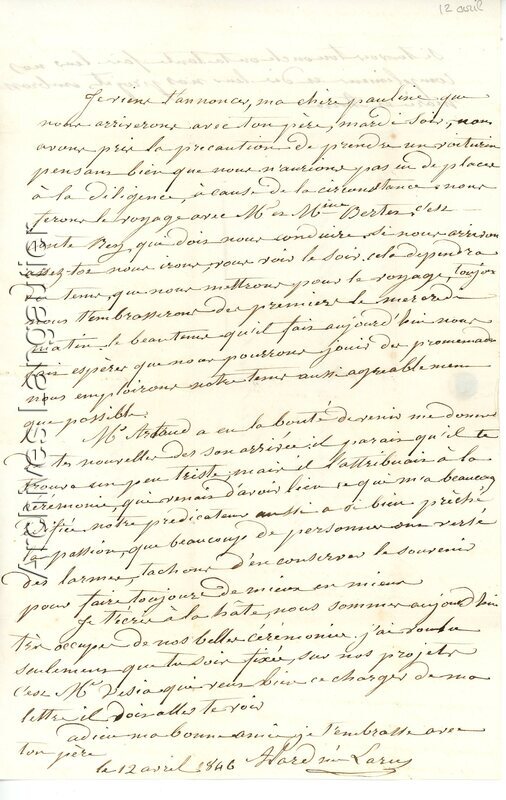 12 avril
Je viens t'annoncer, ma chère pauline que
nous arriverons avec ton père, mardi soir, nous
avons pris la précaution de prendre un voiturin
pensant bien que nous n'aurions pas eu de places
à la diligence, à cause de la circonstance, nous
ferons le voyage avec Mr et Mme Bertet, c'est
Rey, qui doit nous conduire. Si nous arrivons
assez tot nous irons, vous voir le soir, cela dependra
du tems, que nous mettrons pour le voyage, toujours
nous t'embrasserons des premiers le mercredi
matin le beau tems qu'il fait aujourd'hui nous
fait espérer que nous pourrons jouir des promenades
nous emploirons notre tems aussi agréablement
que possible.
Mr Artaud a eu la bonté de venir me donner
tes nouvelles des son arrivée il parait qu'il te
trouva un peu triste, mais il l'attribuait à la
cérémonie, qui venait d'avoir lieu ce qui m'a beaucoup
édifiée, notre predicateur aussi a si bien prêché
la passion, que beaucoup de personnes ont versé
des larmes, tachons d'en conserver le souvenir
pour faire toujours de mieux en mieux
Je t'écris à la hate, nous sommes aujourd'hui
très occupés de nos belles cérémonies, j'ai voulu
seulement que tu sois fixée, sur nos projets
c'est Mr Vesia qui veut bien ce charger de ma
lettre il doit aller te voir
adieu ma bonne amie, je t'embrasse avec
ton père
le 12 avril 1846
Archives Langautier